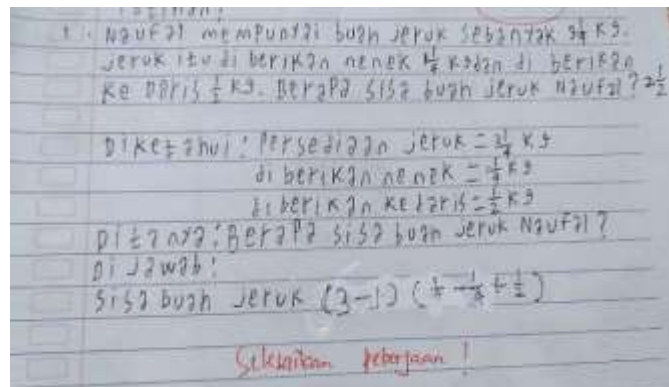 1. Naufal mempunyai buah jeruk sebanyak 3 1/4 kg.
jeruk itu di berikan nenek 1/4 kg dan di berikan
ke Daris 1/2 kg. Berapa sisa buah jeruk Naufal? 2 1/2
Diketahui: Persediaan jeruk = 3 1/4 kg
di berikan nenek = 1/4 kg
di berikan ke daris = 1/2 kg
Ditanya: Berapa sisa buah jeruk Naufal?
Di Jawab:
Sisa buah jeruk (3-1)
Selesaikan pekerjaan!